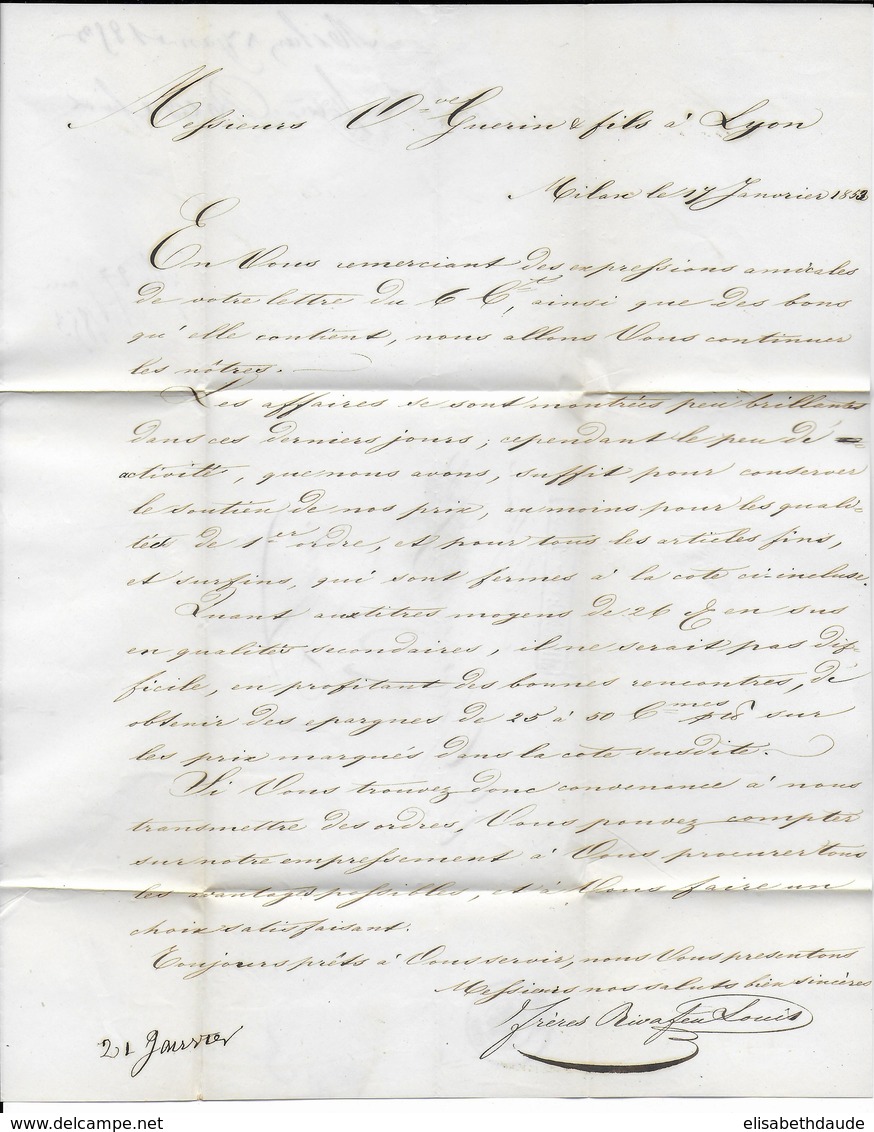 Messieurs V.ve Guerin & fils à Lyon
Milan le 17 Janvier 1853
En Vous remerciant des expressions amicales
de votre lettre du 6 Ct, ainsi que des bons
qu'elle contient, nous allons Vous continuer
les nôtres.
Les affaires se sont montrées peu brillantes
dans ces derniers jours; cependant le peu dé=
activité, que nous avons, suffit pour conserver
le soutien de nos prix, au moins pour les quali=
tés de 1.er ordre, et pour tous les articles fins,
et surfins, qui sont fermes à la cote ci-incluse.
Quant aux titres moyens de 26 & en sus
en qualités secondaires, il ne serait pas dif=
ficile, en profitant des bonnes rencontres, de
obtenir des epargnes de 25 à 50 C.mes sur
les prix marqués dans la cote susdite.
Si Vous trouvez donc convenance à nous
transmettre des ordres, Vous pouvez compter
sur notre empressement à Vous procurer tous
les avantages possibles, et à Vous faire un
choix satisfaisant.
Toujours prêts à Vous servir, nous Vous presentons
Messieurs nos saluts bien sincères
Frères Riva feu Louis
21 Janvier
elisabethdaude